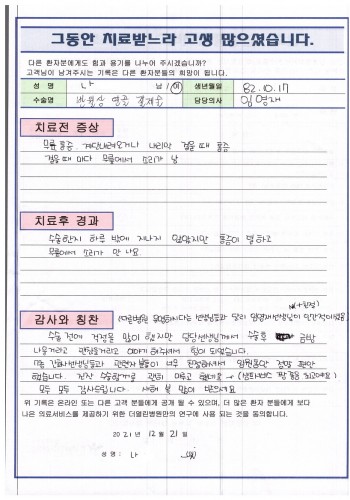 그동안 치료받느라 고생 많으셨습니다.
다른 환자분에게도 힘과 용기를 나누어 주시겠습니까?
고객님이 남겨주시는 기록은 다른 환자분들의 희망이 됩니다.
성 명 나 남/여 생년월일 82.10.17
수술명 반월상 연골 절제술 담당의사 임영재
치료전 증상
무릎통증. 계단내려오거나 내리막 걸을 때 통증
걸을때 마다 무릎에서 소리가 남
치료후 경과
수술한지 하루 밖에 지나지 않았지만 통증이 덜하고
무릎에서 소리가 안 나요.
감사와 칭찬
(다른병원 유명하시다는 선생님들과 달리 임영재선생님이 인간적이셨음
수술 전에 걱정을 많이 했지만 담당선생님께서 수술후 금방
나을거라고 안심 해주셔서 힘이 되었습니다.
간호사선생님들과 관련자분들이 너무 친절하셔서 입원동안 정말 편안
했습니다. 진작 수술할걸 괜히 미루고 했네요~
모두 모두 감사드립니다. 새해 복 많이 받으세요
위 기록은 온라인 또는 다른 고객 분들에게 공개 될 수 있으며, 더 많은 환자 분들에게 보다
나은 의료서비스를 제공하기 위한 더열린병원만의 연구에 사용 되는 것을 동의합니다.
2021년 12월 21일
성명: 나